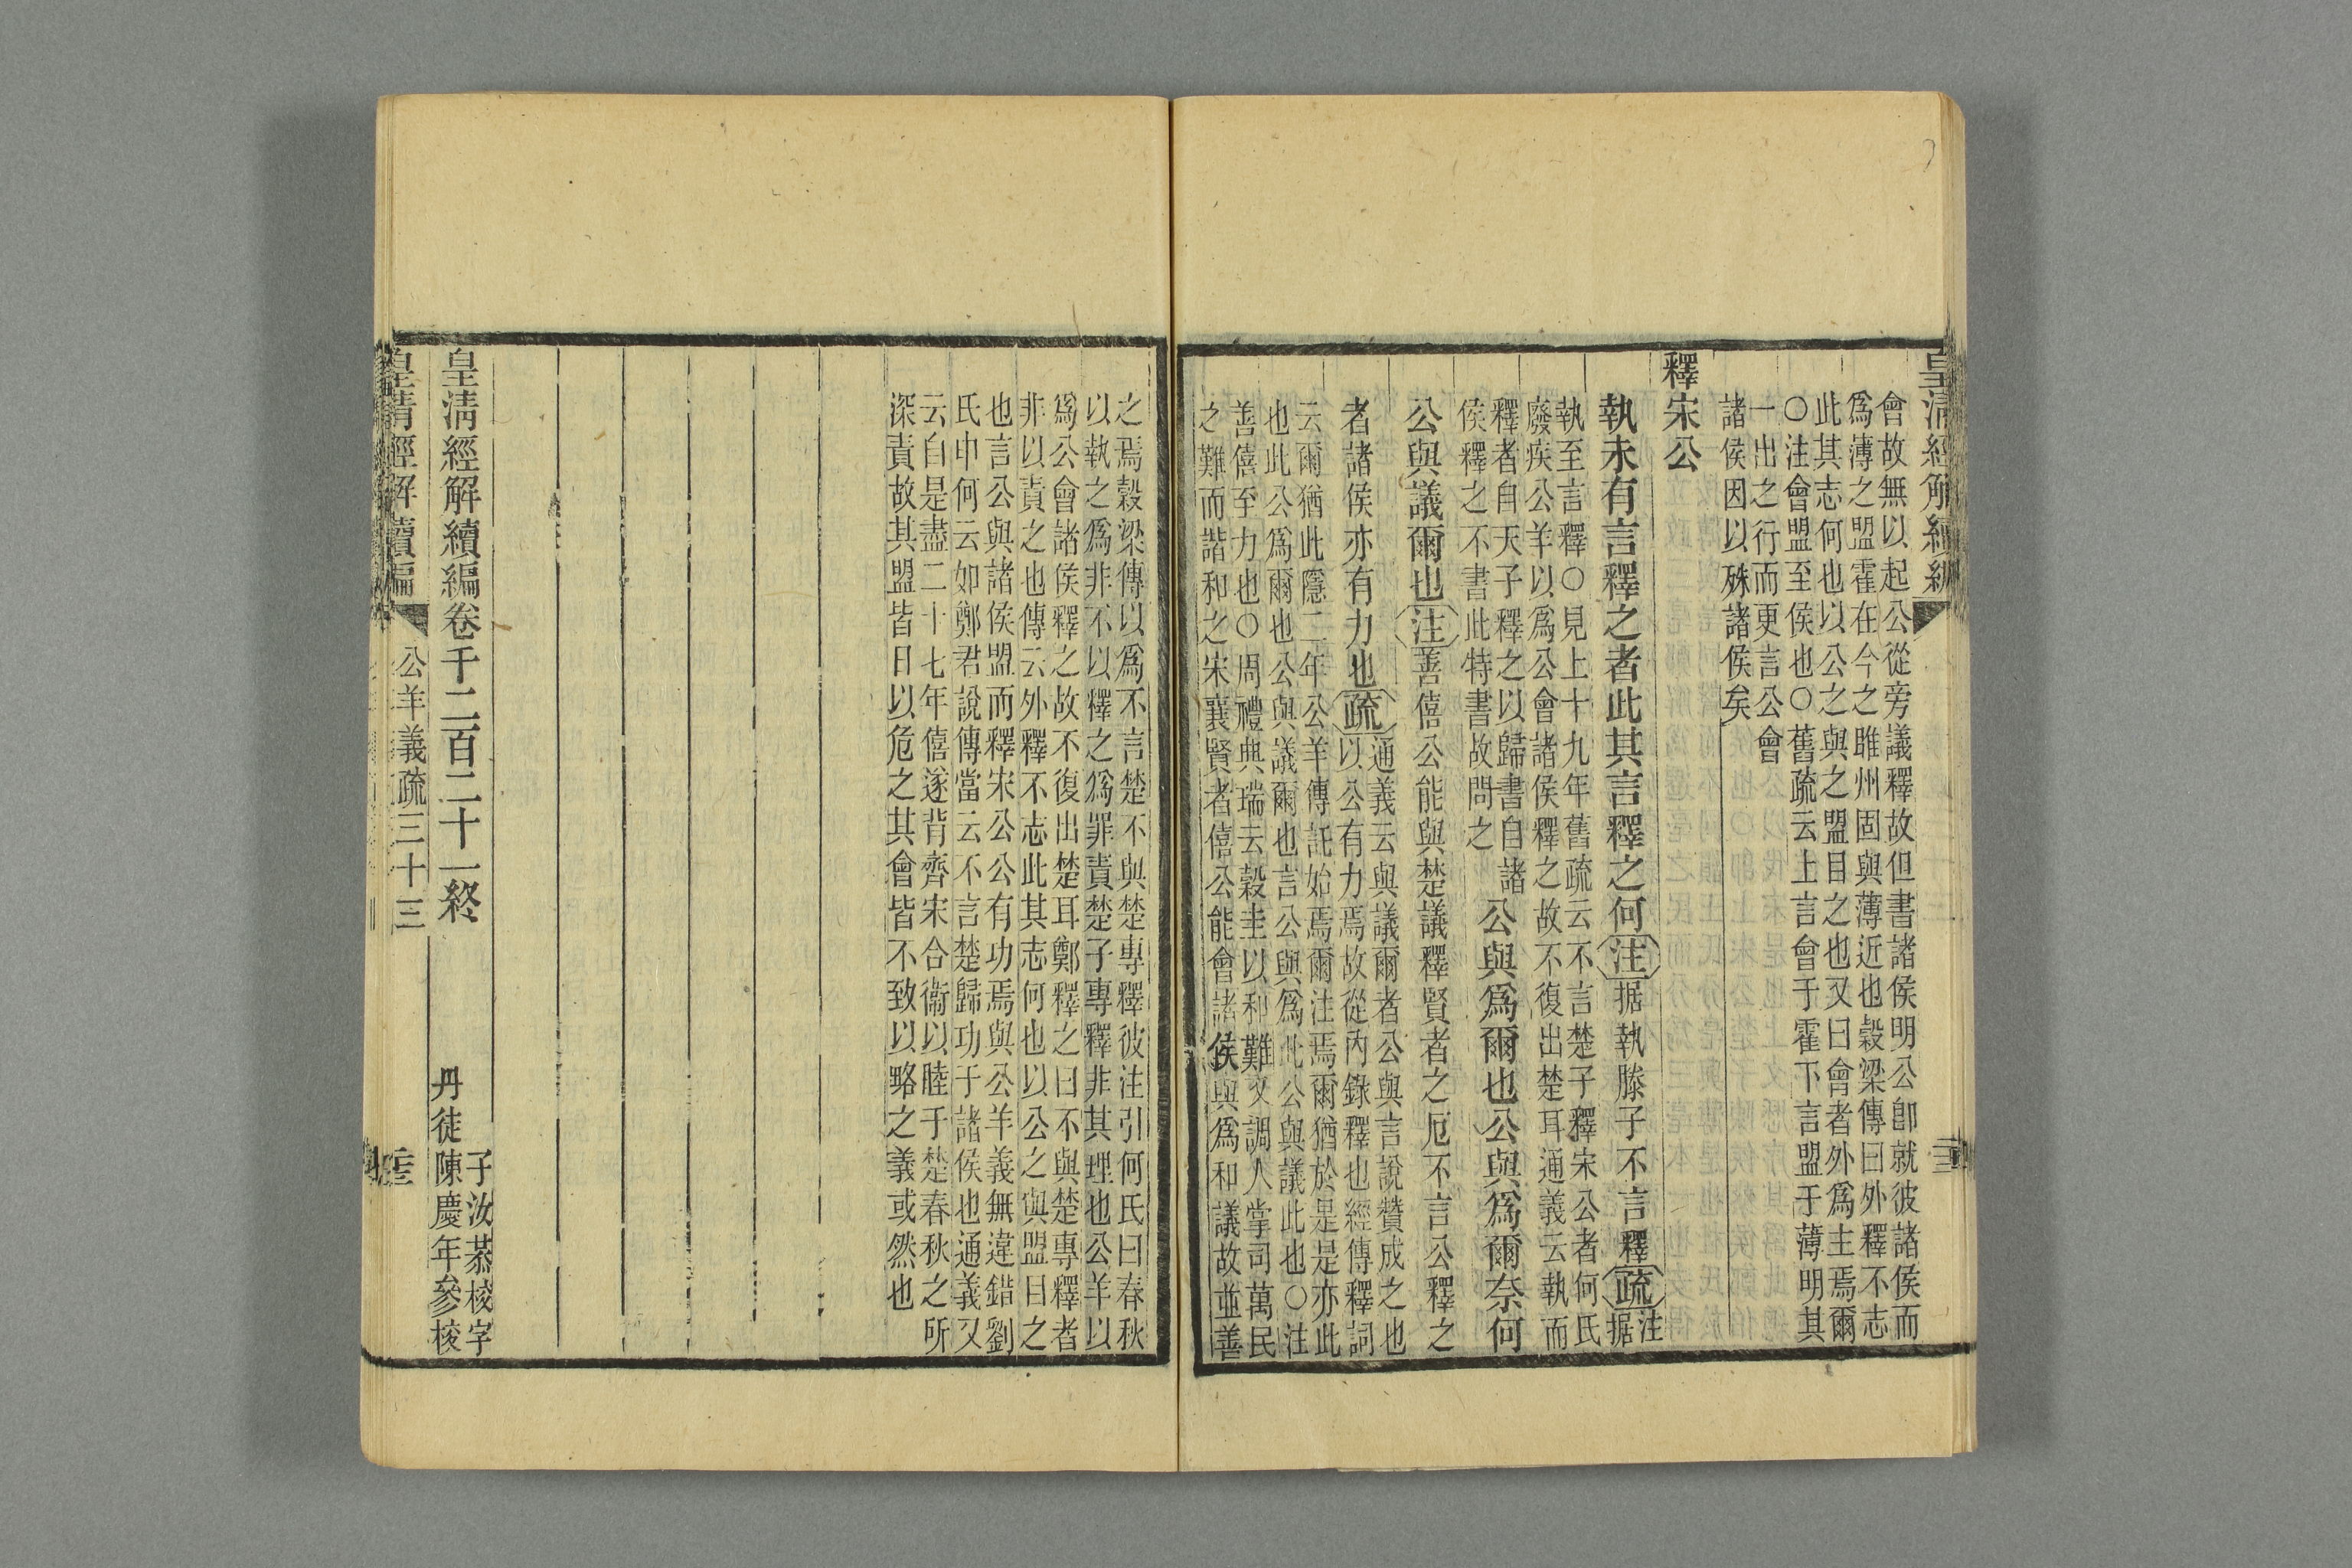 皇清經解續編
會故無以起公從旁議釋故但書諸侯明公卽就彼諸侯而
爲薄之盟霍在今之睢州固與薄近也穀梁傳曰外釋不志
此其志何也以公之與之盟目之也又曰會者外爲主焉爾
○注會盟至侯也○舊疏云上言會于霍下言盟于薄明其
一出之行而更言公會
諸侯因以殊諸侯矣
釋宋公
執未有言釋之者此其言釋之何注据執滕子不言釋疏注
据
執至言釋○見上十九年舊疏云不言楚子釋宋公者何氏
廢疾公羊以爲公會諸侯釋之故不復出楚耳通義云執而
釋者自天子釋之以歸書自諸
侯釋之不書此特書故問之
公與爲爾也公與爲爾奈何
公與議爾也注善僖公能與楚議釋賢者之厄不言公釋之
者諸侯亦有力也疏
通義云與議爾者公與言說贊成之也
以公有力焉故從內錄釋也經傳釋詞
云爾猶此隱二年公羊傳託始焉爾注焉爾猶於是是亦此
也此公爲爾也公與議爾也言公與爲此公與議此也○注
善僖至力也○周禮典瑞云穀圭以和難又調人掌司萬民
之難而諧和之宋襄賢者僖公能會諸侯與爲和議故並善
之焉穀梁傳以爲不言楚不與楚專釋彼注引何氏曰春秋
以執之爲非不以釋之爲罪責楚子專釋非其理也公羊以
爲公會諸侯釋之故不復出楚耳鄭釋之曰不與楚專釋者
非以責之也傳云外釋不志此其志何也以公之與盟目之
也言公與諸侯盟而釋宋公公有功焉與公羊義無違錯劉
氏申何云如鄭君說傳當云不言楚歸功于諸侯也通義又
云自是盡二十七年僖遂背齊宋合衞以睦于楚春秋之所
深責故其盟皆日以危之其會皆不致以略之義或然也
皇清經解續編卷千二百二十一終
子汝恭校字
丹徒陳慶年參校
皇清經解續編
公羊義疏三十三